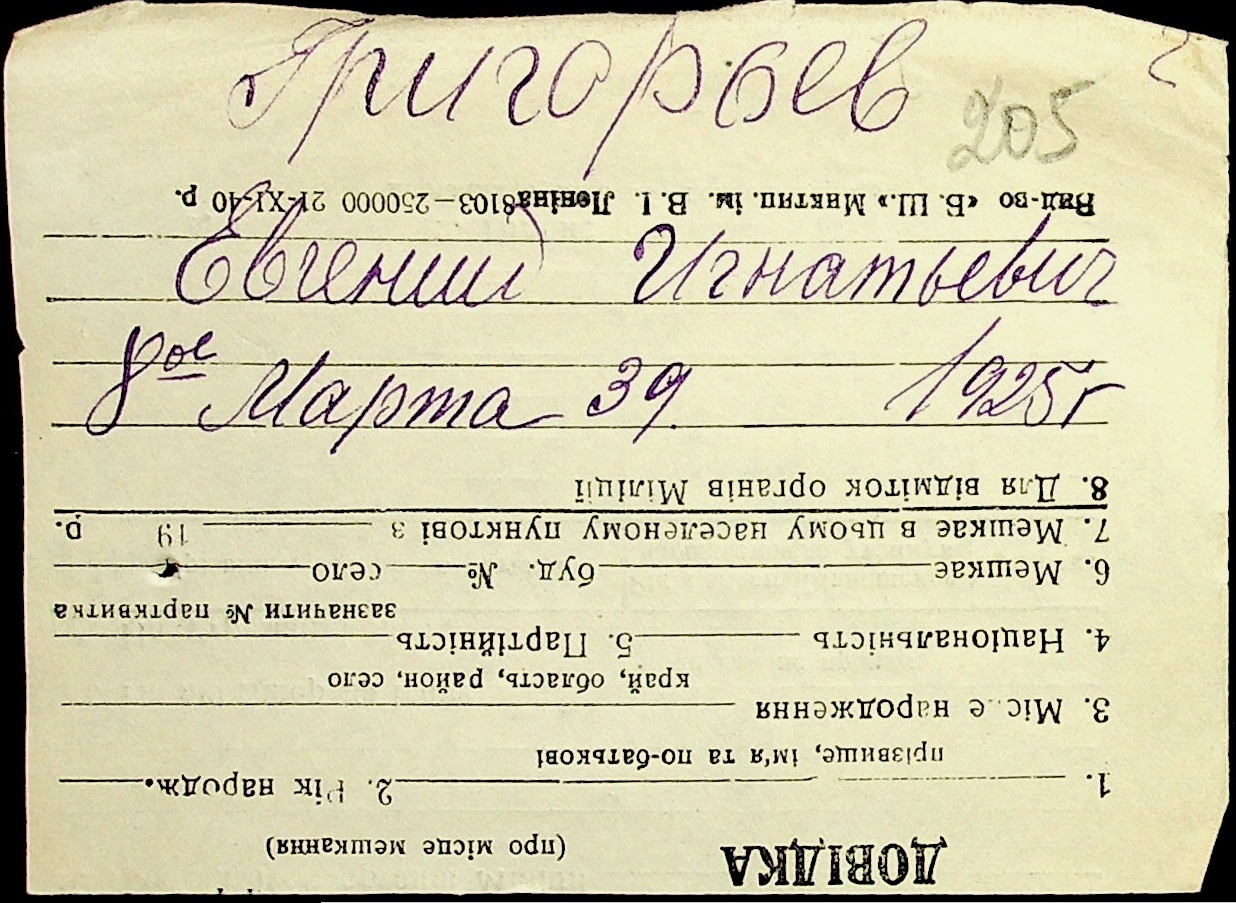 Григорьев
205
Евгений Игнатьевич
8ое Марта 39 1925г
ДОВІДКА
(про місце мешкання)
1. 2. Рік народж.
прізвище, ім'я та по-батькові
3. Міс е народження
край, область, район, село
4. Національність 5. Партійність
зазначити № партквитка
6. Мешкає буд. № село
7. Мешкає в цьому населеному пунктові з 19 р.
8. Для відміток органів Міліції
Вид-во «Б. Ш.» Миктип. ім. В. І. Леніна 8103—250000 21-XI-40 р.